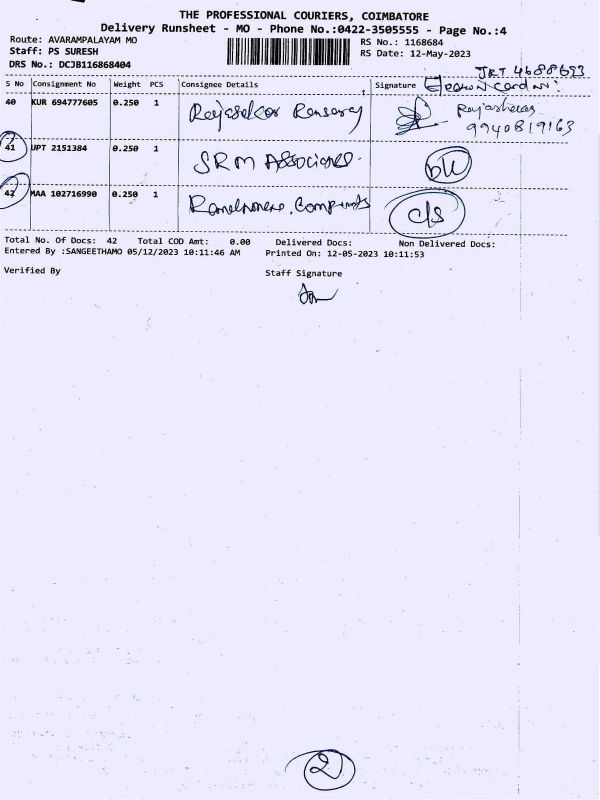 THE PROFESSIONAL COURIERS, COIMBATORE
Delivery Runsheet - MO - Phone No.:0422-3505555 - Page No.:4
Route: AVARAMPALAYAM MO
RS No.: 1168684
Staff: PS SURESH
RS Date: 12-May-2023
DRS No.: DCJB116868404
JRT 4688693
S No Consignment No Weight PCS Consignee Details Signature
40 KUR 694777605 0.250 1
9940819163
41 UPT 2151384 0.250 1 SRM Associates.
42 MAA 102716990 0.250 1 c/s
Total No. Of Docs: 42 Total COD Amt: 0.00 Delivered Docs: Non Delivered Docs:
Entered By :SANGEETHAMO 05/12/2023 10:11:46 AM Printed On: 12-05-2023 10:11:53
Verified By Staff Signature
2